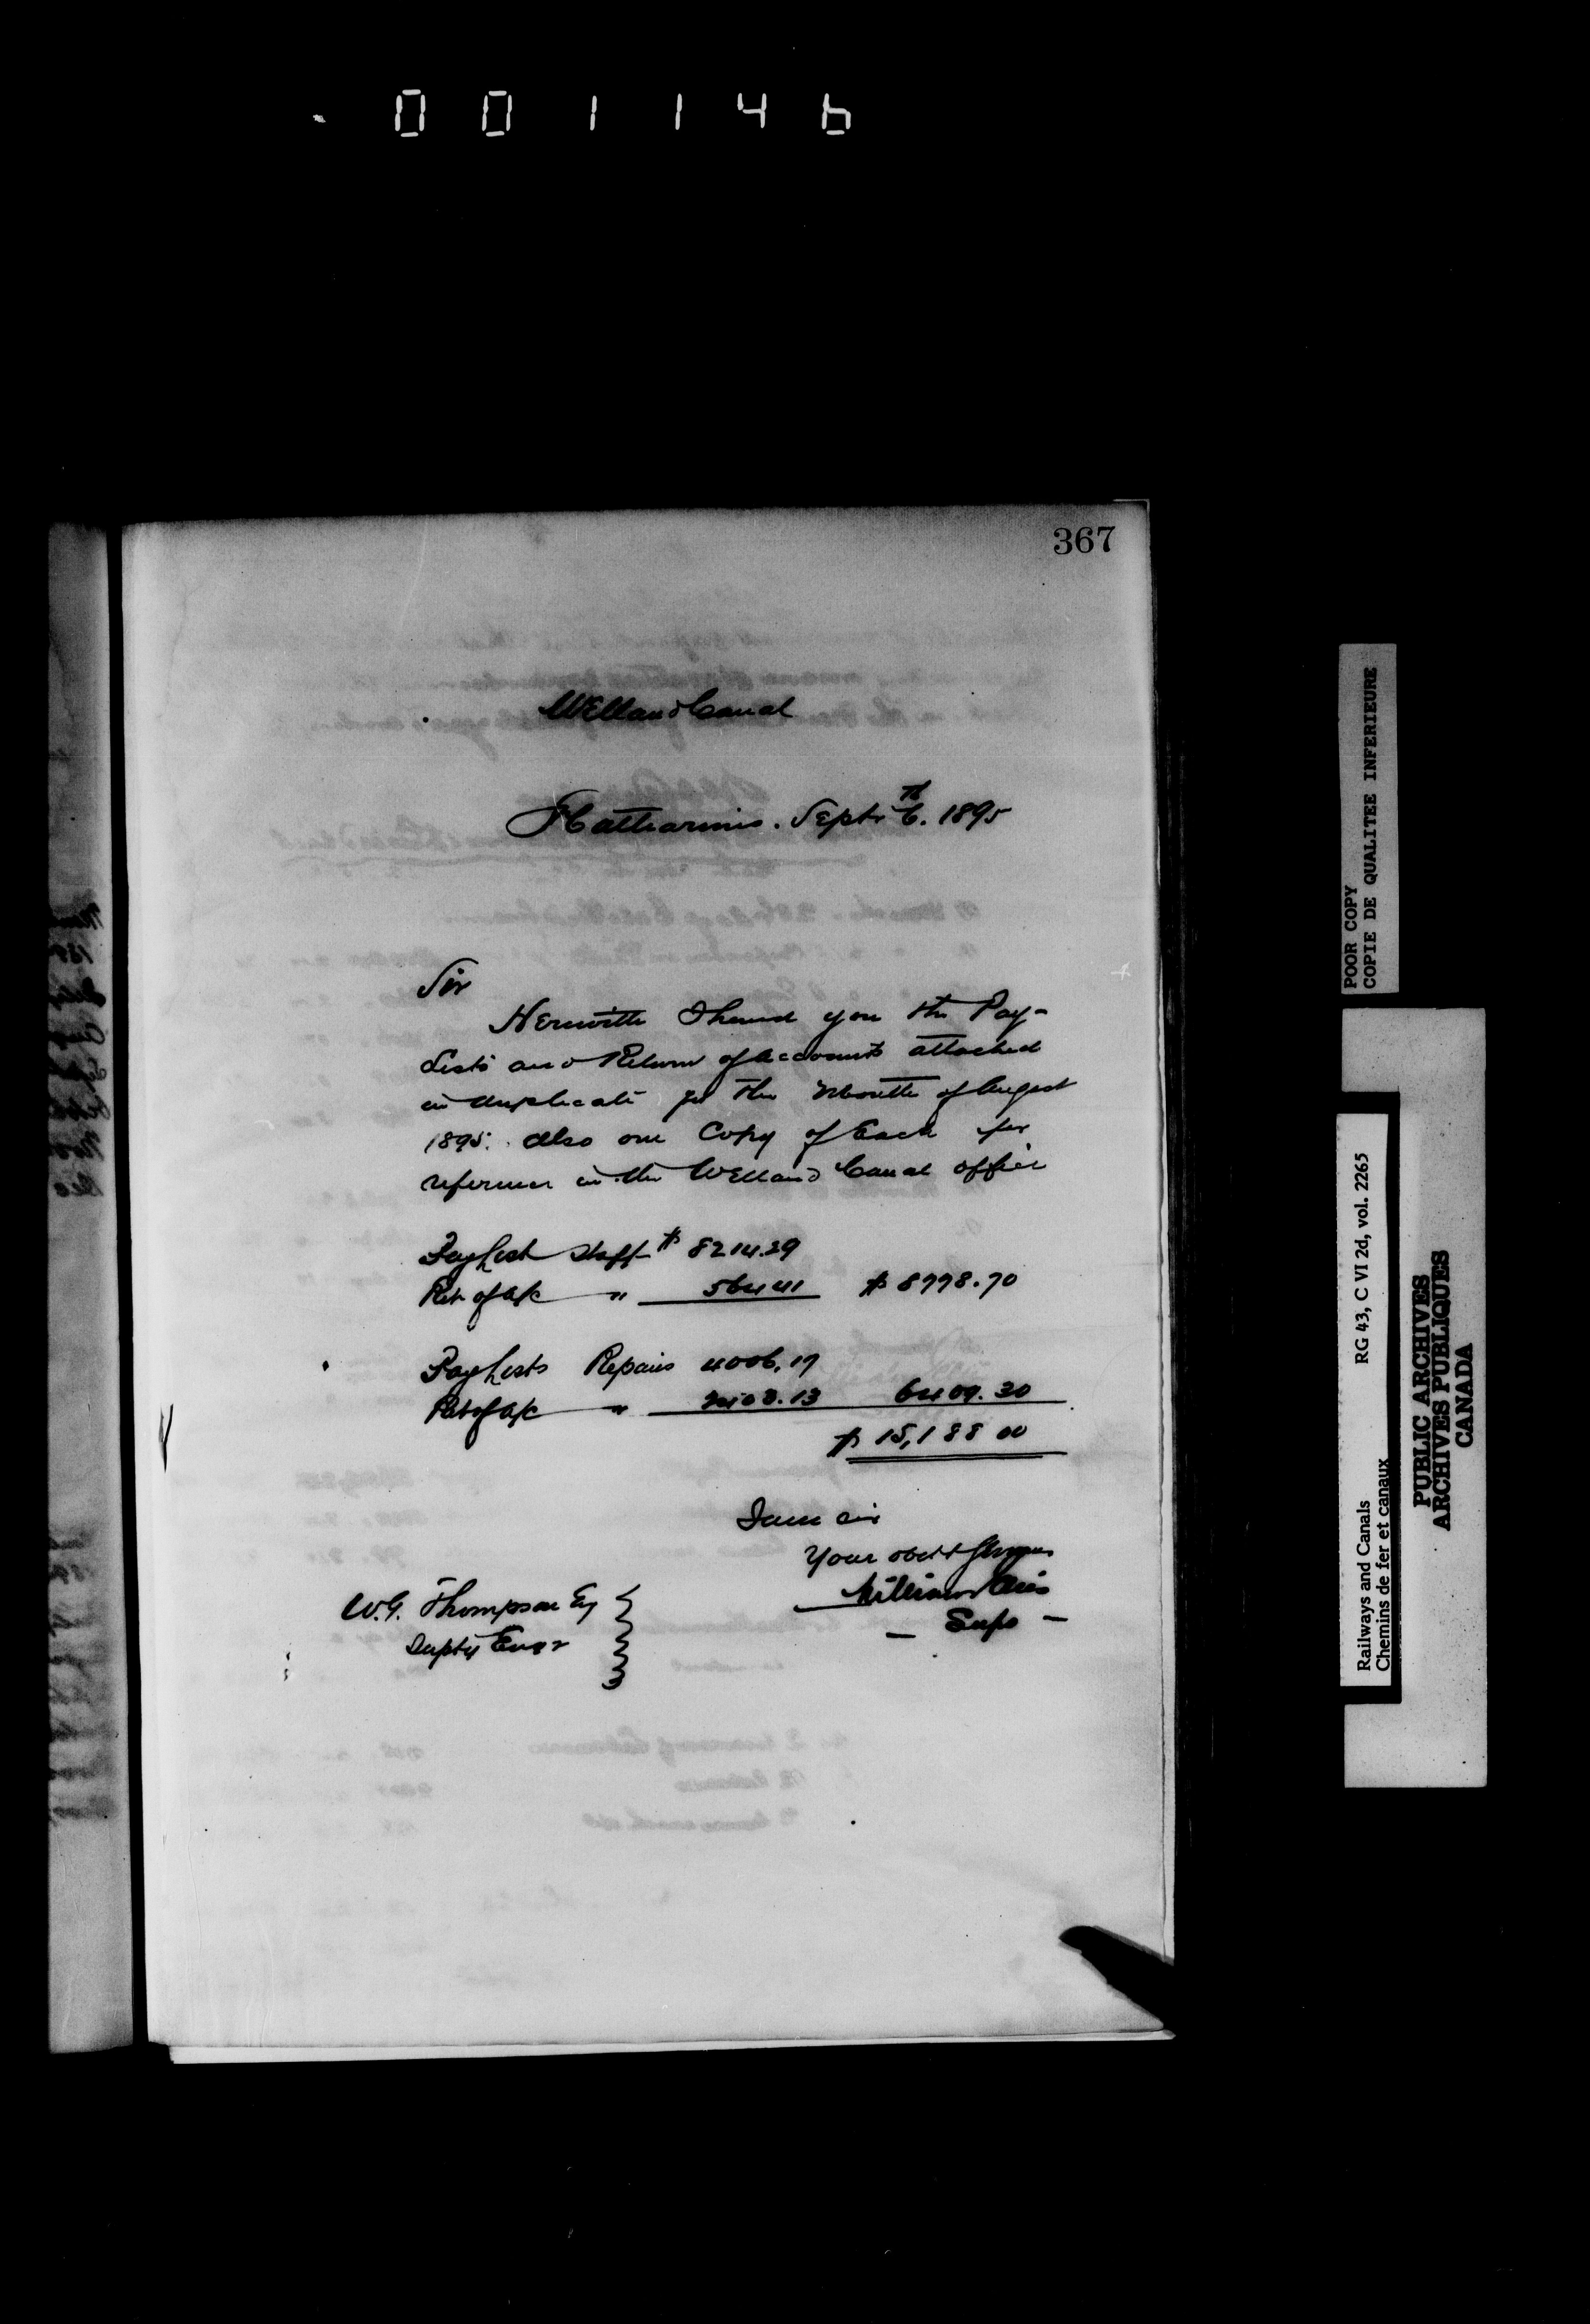 001146
367
Welland Canal
St Catharines. Septr 6th. 1895
Sir
Herewith I hand you the Pay-
Lists and Return of Accounts attached
in duplicate for the Month of August
1895. also one Copy of Each for
reference in the Welland Canal office
Paylist Staff $ 8214.29
Ret of a/c " 564 41 $ 8778.70
Paylists Repairs 4006.17
Ret of a/c " 2403.13 6409.30
$ 15,188 00
I am Sir
Your obedt Servant
William Ellis
- Supt -
W.G. Thompson Esq
Supty Engr
POOR COPY
COPIE DE QUALITEE INFERIEURE
Railways and Canals RG 43, C VI 2d, vol. 2265
Chemins de fer et canaux
PUBLIC ARCHIVES
ARCHIVES PUBLIQUES
CANADA